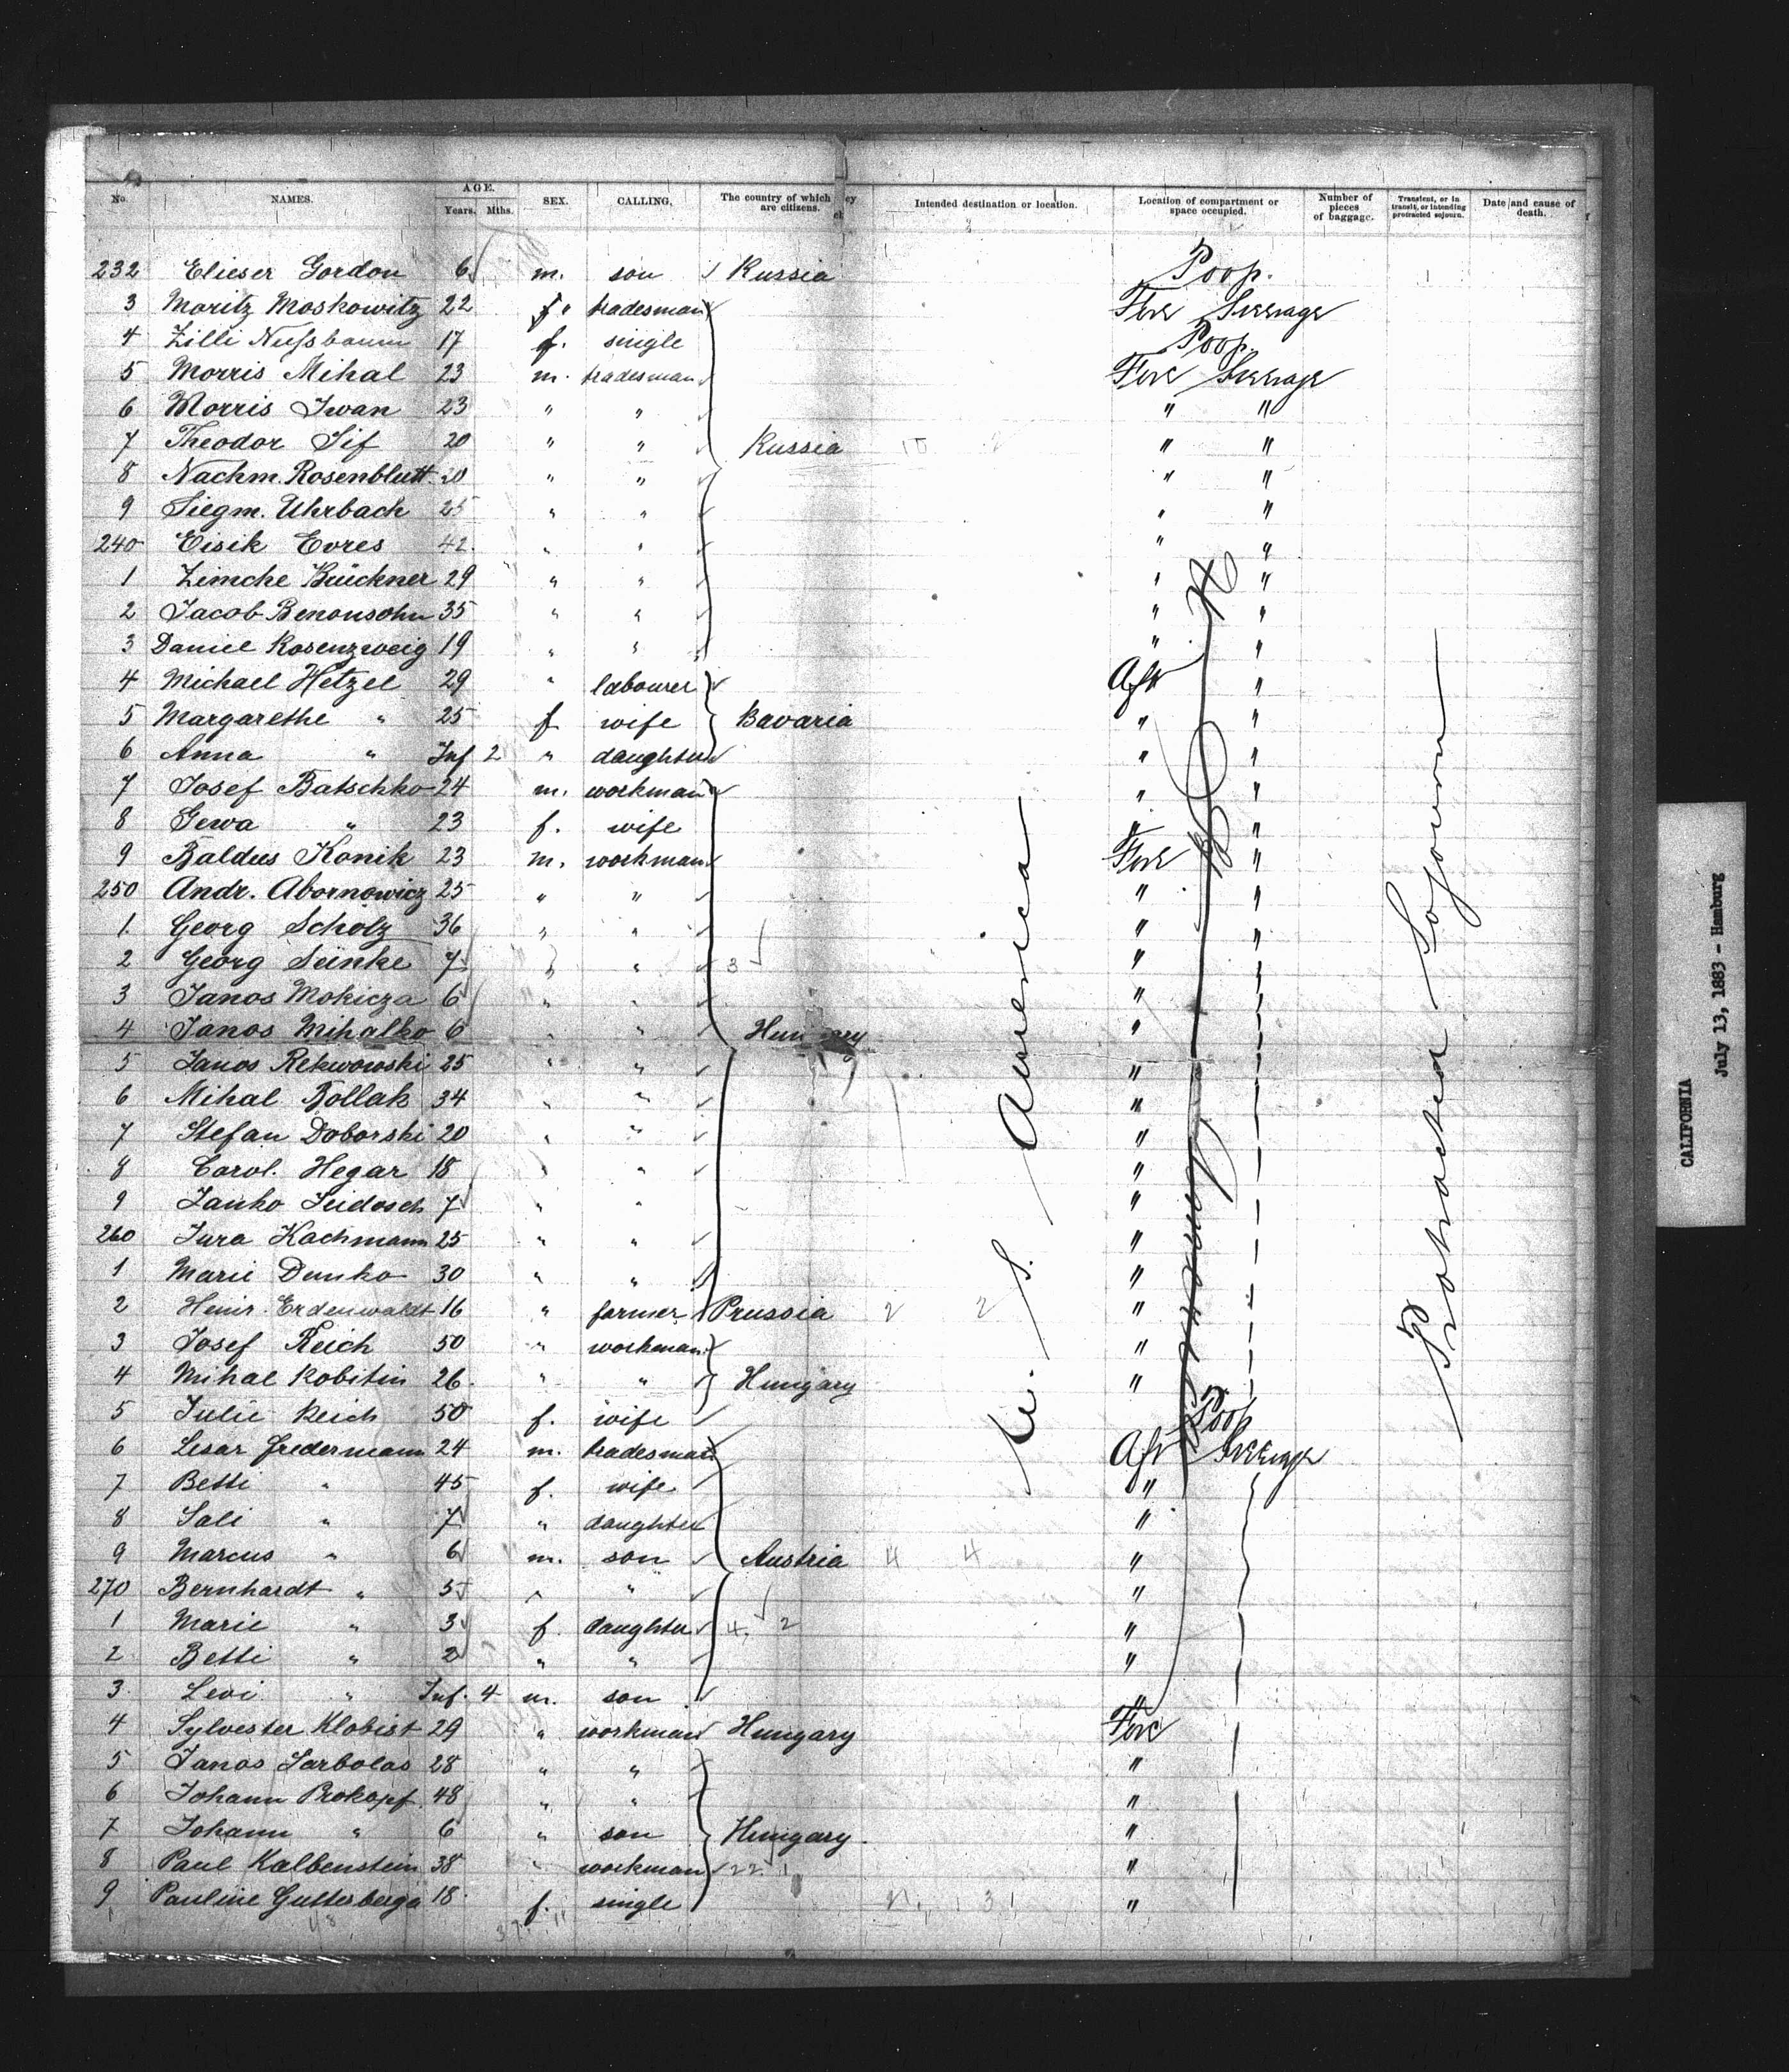 No. NAMES. AGE. Years. Mths. SEX. CALLING. The country of which they are citizens. Intended destination or location. Location of compartment or space occupied. Number of pieces of baggage. Transient, or in transit, or intending protracted sojourn. Date and cause of death.
232 Elieser Gordon 6 m. son Russia Poop.
3 Moritz Moskowitz 22 " tradesman Fore Steerage
4 Zilli Nußbaum 17 f. single Poop.
5 Morris Mihal 23 m. tradesman Fore Steerage
6 Morris Iwan 23 " " " "
7 Theodor Sif 20 " " Russia 10 2 " "
8 Nachm. Rosenblutt 20 " " " "
9 Siegm. Uhrbach 25 " " " "
240 Eisik Evres 42 " " " "
1 Zimche Brückner 29 " " " "
2 Jacob Benonsohn 35 " " " "
3 Daniel Rosenzweig 19 " " " "
4 Michael Hetzel 29 " labourer Aft "
5 Margarethe " 25 f wife Bavaria " "
6 Anna " Inf 2 " daughter " "
7 Josef Batschko 24 m. workman " "
8 Gewa " 23 f. wife " "
9 Baldus Konik 23 m. workman Fore "
250 Andr. Abornowicz 25 " " " "
1 Georg Scholz 36 " " " "
2 Georg Seinke 7 " " 3 "
3 Janos Mokicza 6 " " "
4 Janos Mihalko 6 " " Hungary "
5 Janos Rekwowski 25 " " "
6 Mihal Bollak 34 " " "
7 Stefan Doborski 20 " " "
8 Carol. Hegar 18 " " "
9 Janko Seidosch 7 " " "
260 Jura Kachmann 25 " " "
1 Marie Demko 30 " " "
2 Heinr. Erdenwaldt 16 " farmer Prussia 2 2 "
3 Josef Reich 50 " workman "
4 Mihal Robitin 26 " " Hungary "
5 Julie Reich 50 f. wife Poop
6 Lesar Federmann 24 m. tradesman Aft Steerage
7 Betti " 45 f. wife "
8 Sali " 7 " daughter "
9 Marcus " 6 m. son Austria 4 4 "
270 Bernhardt " 5 " " "
1 Marie " 3 f. daughter 4. 2 "
2 Betti " 2 " " "
3 Levi " Inf. 4 m. son "
4 Sylvester Klobist 29 " workman Hungary Fore
5 Janos Sarbolas 28 " " "
6 Johann Prokopf 48 " " "
7 Johann " 6 " son Hungary. "
8 Paul Kalbenstein 38 " workman 22 1 "
9 Pauline Guttsberga 18 f. single 3 "
48 37 11
U. S. America
Protracted Sojourn
CALIFORNIA
July 13, 1883 - Hamburg